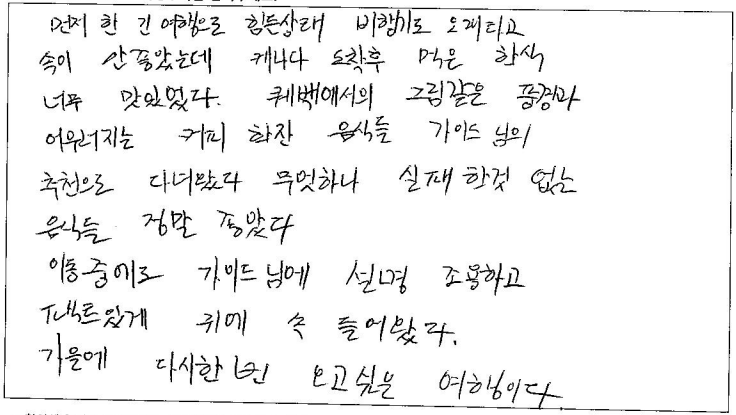 먼저 한 긴 여행으로 힘든상태 비행기도 오래타고
속이 안좋았는데 캐나다 도착후 먹은 한식
너무 맛있었다. 퀘벡에서의 그림같은 풍경과
어우러지는 커피 한잔 음식들 가이드 님의
추천으로 다녀왔다 무엇하나 실패 한것 없는
음식들 정말 좋았다
이동중에도 가이드 님에 설명 조용하고
팩트있게 귀에 속 들어왔다.
가을에 다시한번 오고싶은 여행이다